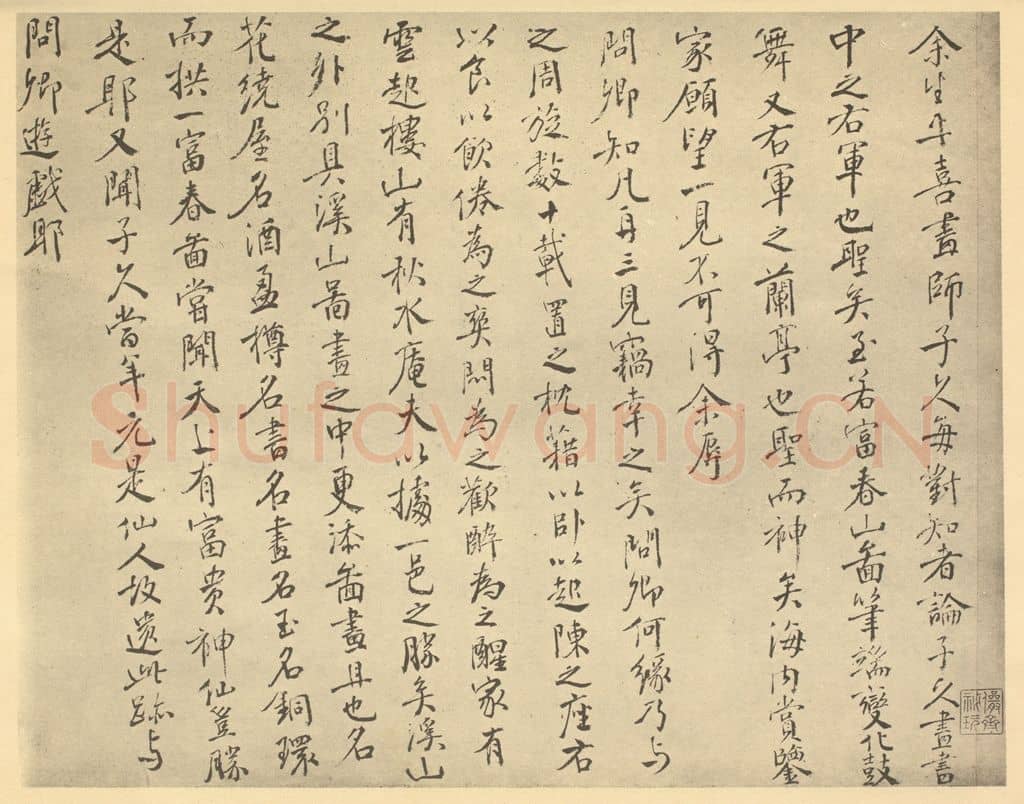 余生平喜畫師子久每對知者論子久畫書
中之右軍也聖矣至若富春山啚筆端變化鼓
舞又右軍之蘭亭也聖而神矣海內賞鑒
家願望一見不可得余辱
問卿知凡再三見竊幸之矣問卿何緣乃与
之周旋數十載置之枕籍以卧以起陳之座右
以食以飲倦為之爽悶為之歡醉為之醒家有
雲起樓山有秋水庵夫以據一邑之勝矣溪山
之外別具溪山啚畫之中更添啚畫且也名
花繞屋名酒盈樽名書名畫名玉名銅環
而拱一富春啚嘗聞天上有富貴神仙豈勝
是耶又聞子久當年元是仙人故遺此跡与
問卿遊戲耶
儼齋秘玩
Shufawang.CN